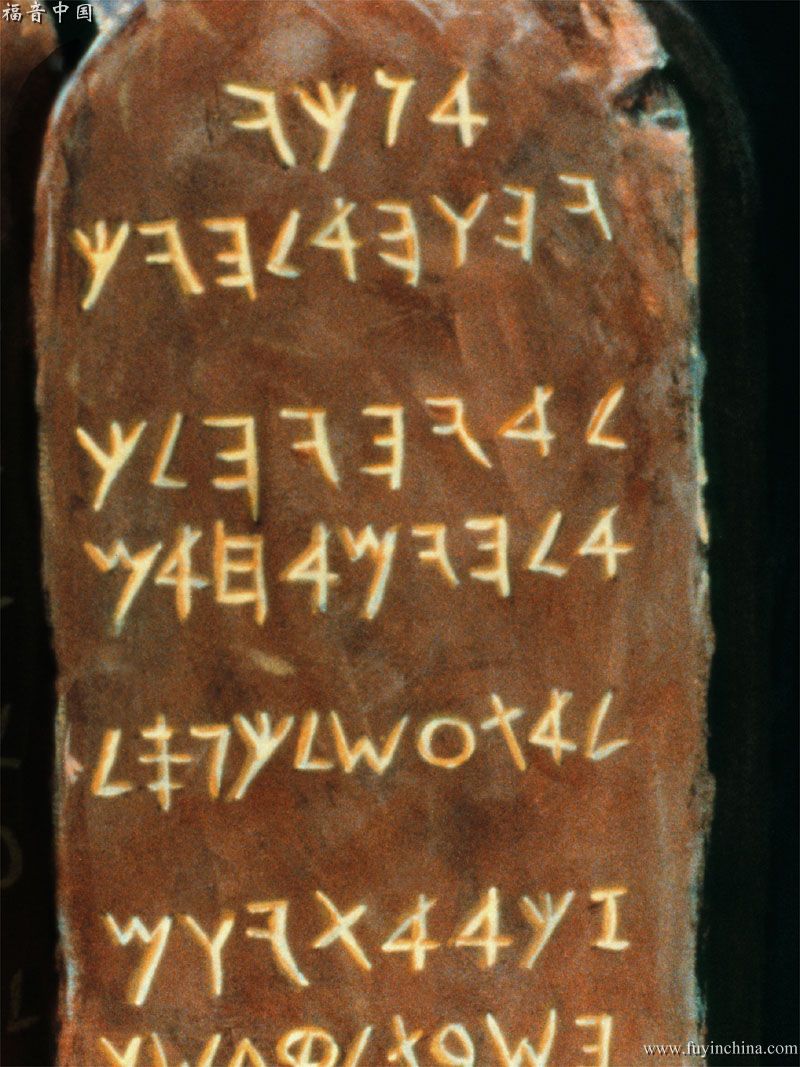 福音中国
𐤀𐤍𐤊𐤉
𐤉𐤄𐤅𐤄𐤀𐤋𐤄𐤉𐤊
𐤋𐤀𐤉𐤄𐤉𐤄𐤋𐤊
𐤀𐤋𐤄𐤉𐤌𐤀𐤇𐤀𐤌
𐤋𐤀𐤕𐤏𐤔𐤋𐤊𐤐𐤎𐤋
𐤆𐤊𐤀𐤀𐤕𐤉𐤅𐤌
www.fuyinchina.com